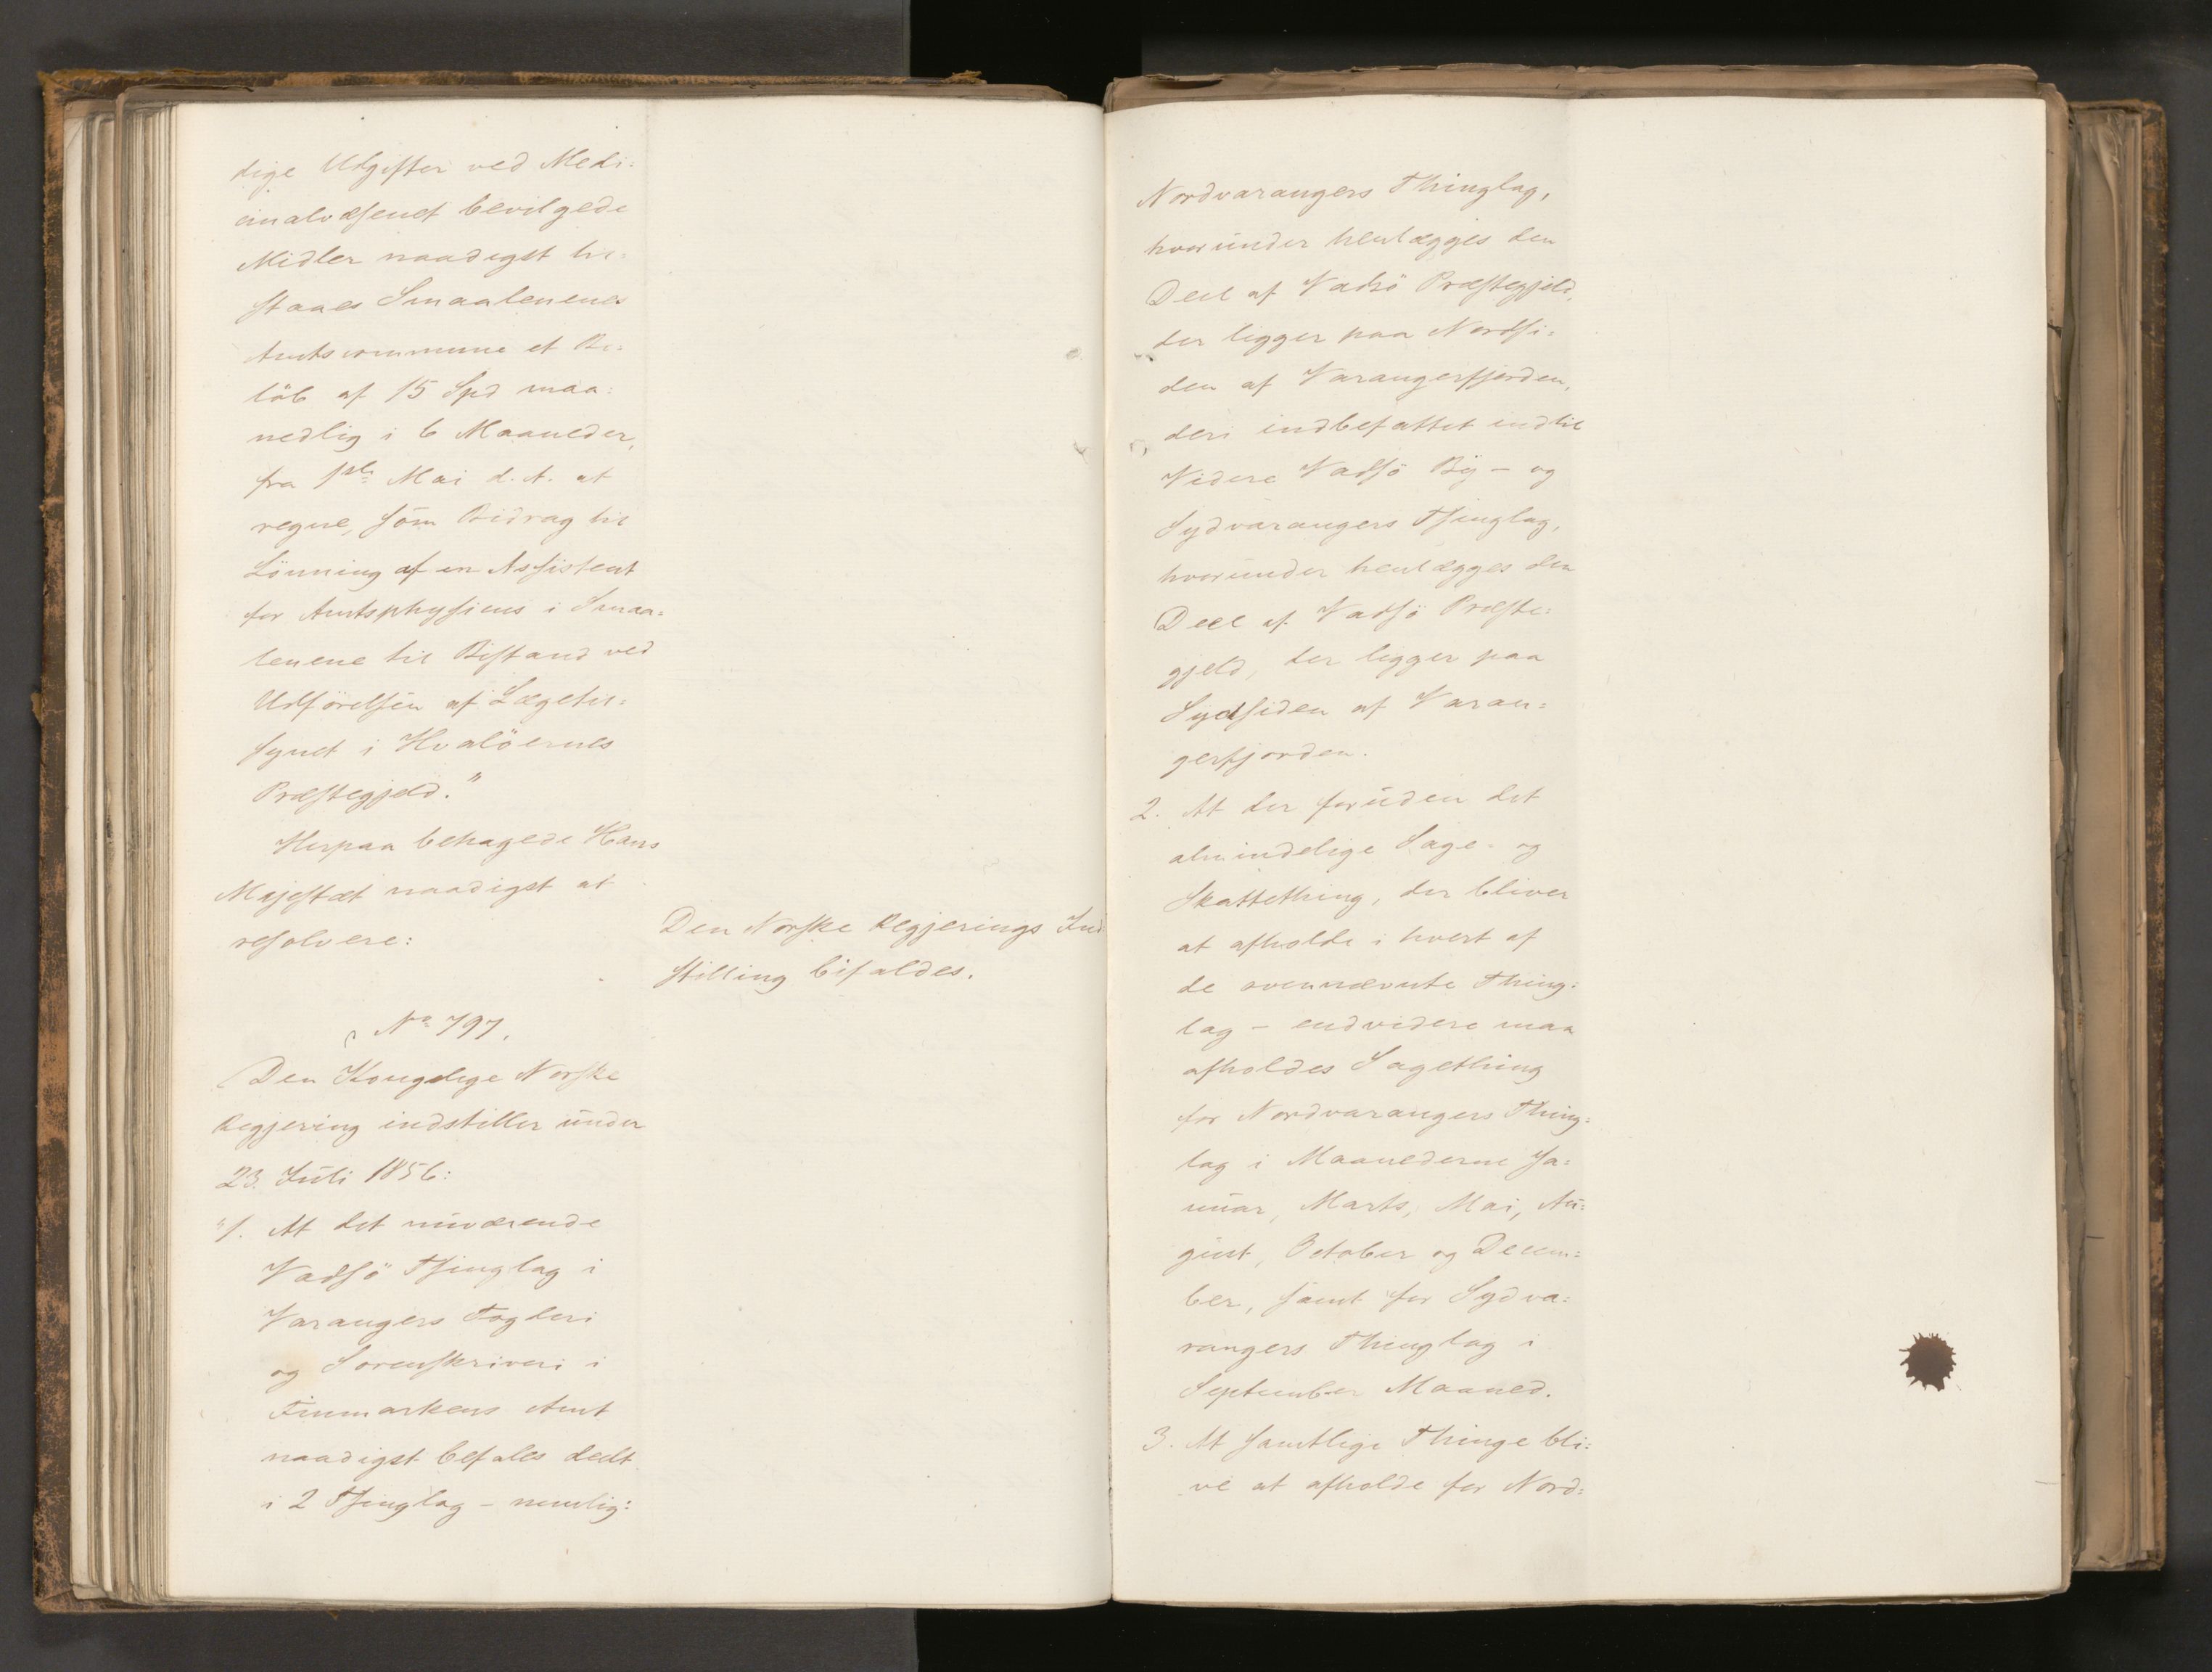 dige Udgifter ved Medi-
cinalvæsenet bevilgede
Midler naadigst til-
staaes Smaalenenes
Amtscommune et Be-
löb af 15 Spd maa-
nedlig i 6 Maaneder,
fra 1ste Mai d. A. at
regne, som Bidrag til
Lönning af en Assistent
for Amtsphysicus i Smaa-
lenene til Bistand ved
Udförelsen af Lægetil-
synet i Hvalöernes
Præstegjeld."
Herpaa behagede Hans
Majestæt naadigst at
resolvere:
Den Norske Regjerings Ind-
stilling bifaldes.
No 797.
Den Kongelige Norske
Regjering indstiller under
23. Juli 1856:
"1. At det nuværende
Vadsö Thinglag i
Varangers Fogderi
og Sorenskriveri i
Finmarkens Amt
naadigst befales deelt
i 2 Thinglag – nemlig:
Nordvarangers Thinglag,
hvorunder henlægges den
Deel af Vadsö Præstegjeld,
der ligger paa Nordsi-
den af Varangerfjorden,
deri indbefattet indtil
Videre Vadsö By – og
Sydvarangers Thinglag,
hvorunder henlægges den
Deel af Vadsö Præste-
gjeld, der ligger paa
Sydsiden af Varan-
gerfjorden.
2. At der foruden det
almindelige Sage- og
Skattething, der bliver
at afholde i hvert af
de ovennævnte Thing-
lag – endvidere maa
afholdes Sagething
for Nordvarangers Thing-
lag i Maanederne Ja-
nuar, Marts, Mai, Au-
gust, October og Decem-
ber, samt for Sydva-
rangers Thinglag i
September Maaned.
3. At samtlige Thinge bli-
ve at afholde for Nord-